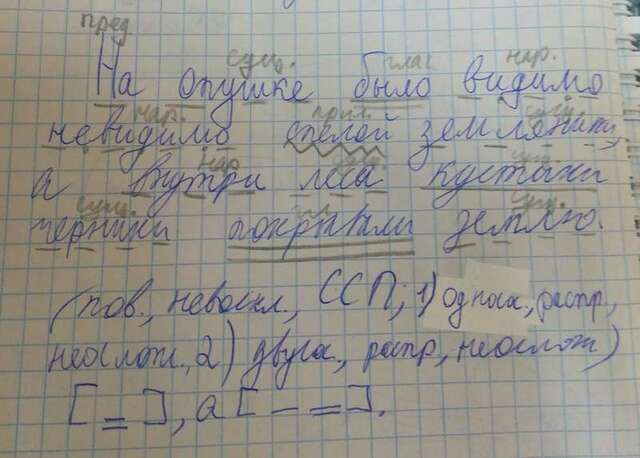 пред
сущ. глаг нар.
На опушке было видимо
нар. прил. сущ.
невидимо спелой земляники,
нар сущ.
а внутри леса кустики
сущ. гл. сущ.
черники покрывали землю.
(пов., невоскл., ССП; 1) одност., распр.,
неослож., 2) двусл., распр, неослож)
[=], а [– =].